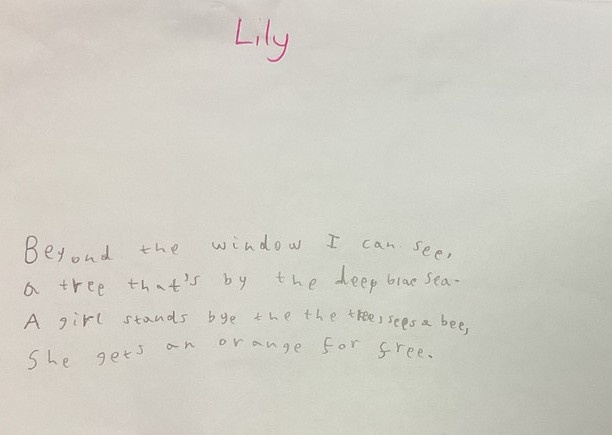 Lily
Beyond the window I can see,
a tree that's by the deep blae sea.
A girl stands bye the the tree, sees a bee,
She gets an orange for free.